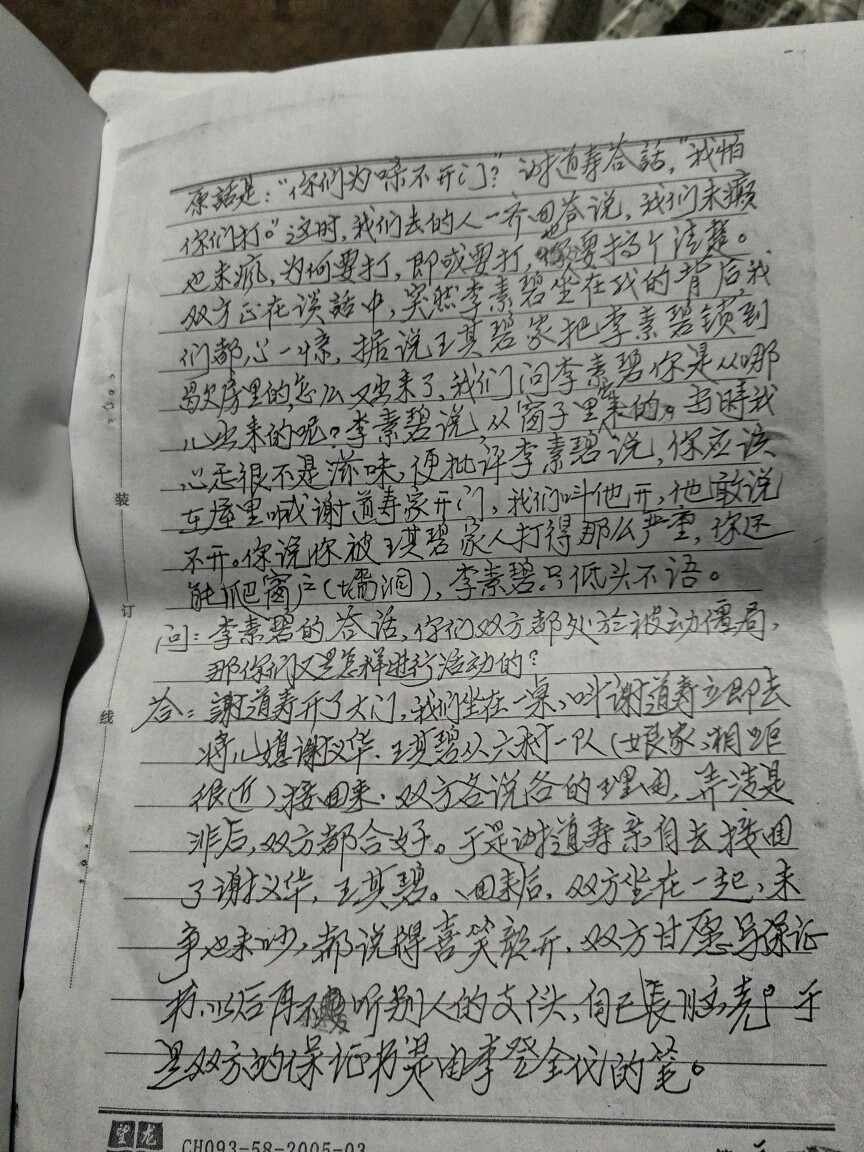 原話是：“你们为啥不开门？”谢道寿答話，“我怕
你们打。”这时，我们去的人一齐回答说，我们未癫
也未疯，为何要打，即或要打，也要搞个清楚。
双方正在谈話中，突然李素碧坐在我的背后，我
们都心一惊，据说王其碧家把李素碧锁到
歇房里的，怎么又出来了，我们问李素碧你是从哪
儿出来的呢？李素碧说，从窗子里来的。当时我
心忑很不是滋味，便批评李素碧说，你应该
在屋里喊谢道寿家开门，我们叫他开，他敢说
不开。你说你被王其碧家人打得那么严重，你还
能爬窗户（墙洞），李素碧只低头不语。
问：李素碧的答话，你们双方都处於被动僵局，
那你们又是怎样进行活动的？
答：謝道寿开了大门，我们坐在一桌，叫谢道寿立即去
将儿媳谢义华、王其碧从六村一队（娘家、相距
很近）接回来，双方各说各的理由，弄清是
非后，双方都合好。于是谢道寿亲自去接回
了谢义华，王其碧。回来后，双方坐在一起，未
争也未吵，都说得喜笑颜开，双方甘愿写保证
书，以后再不听别人的支使，自己長脑壳。于
是双方的保证书是由李登全代的笔。
装
订
线
望龙
CH093-58-2005-03